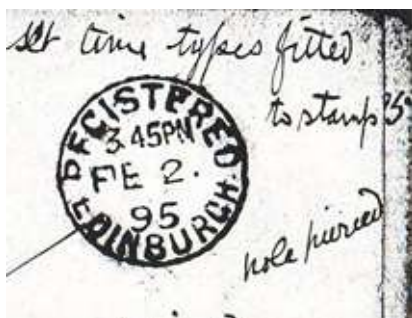 Set time types fitted
to stamp
REGISTERED
3.45PM
FE 2.
95
EDINBURGH
hole pierced